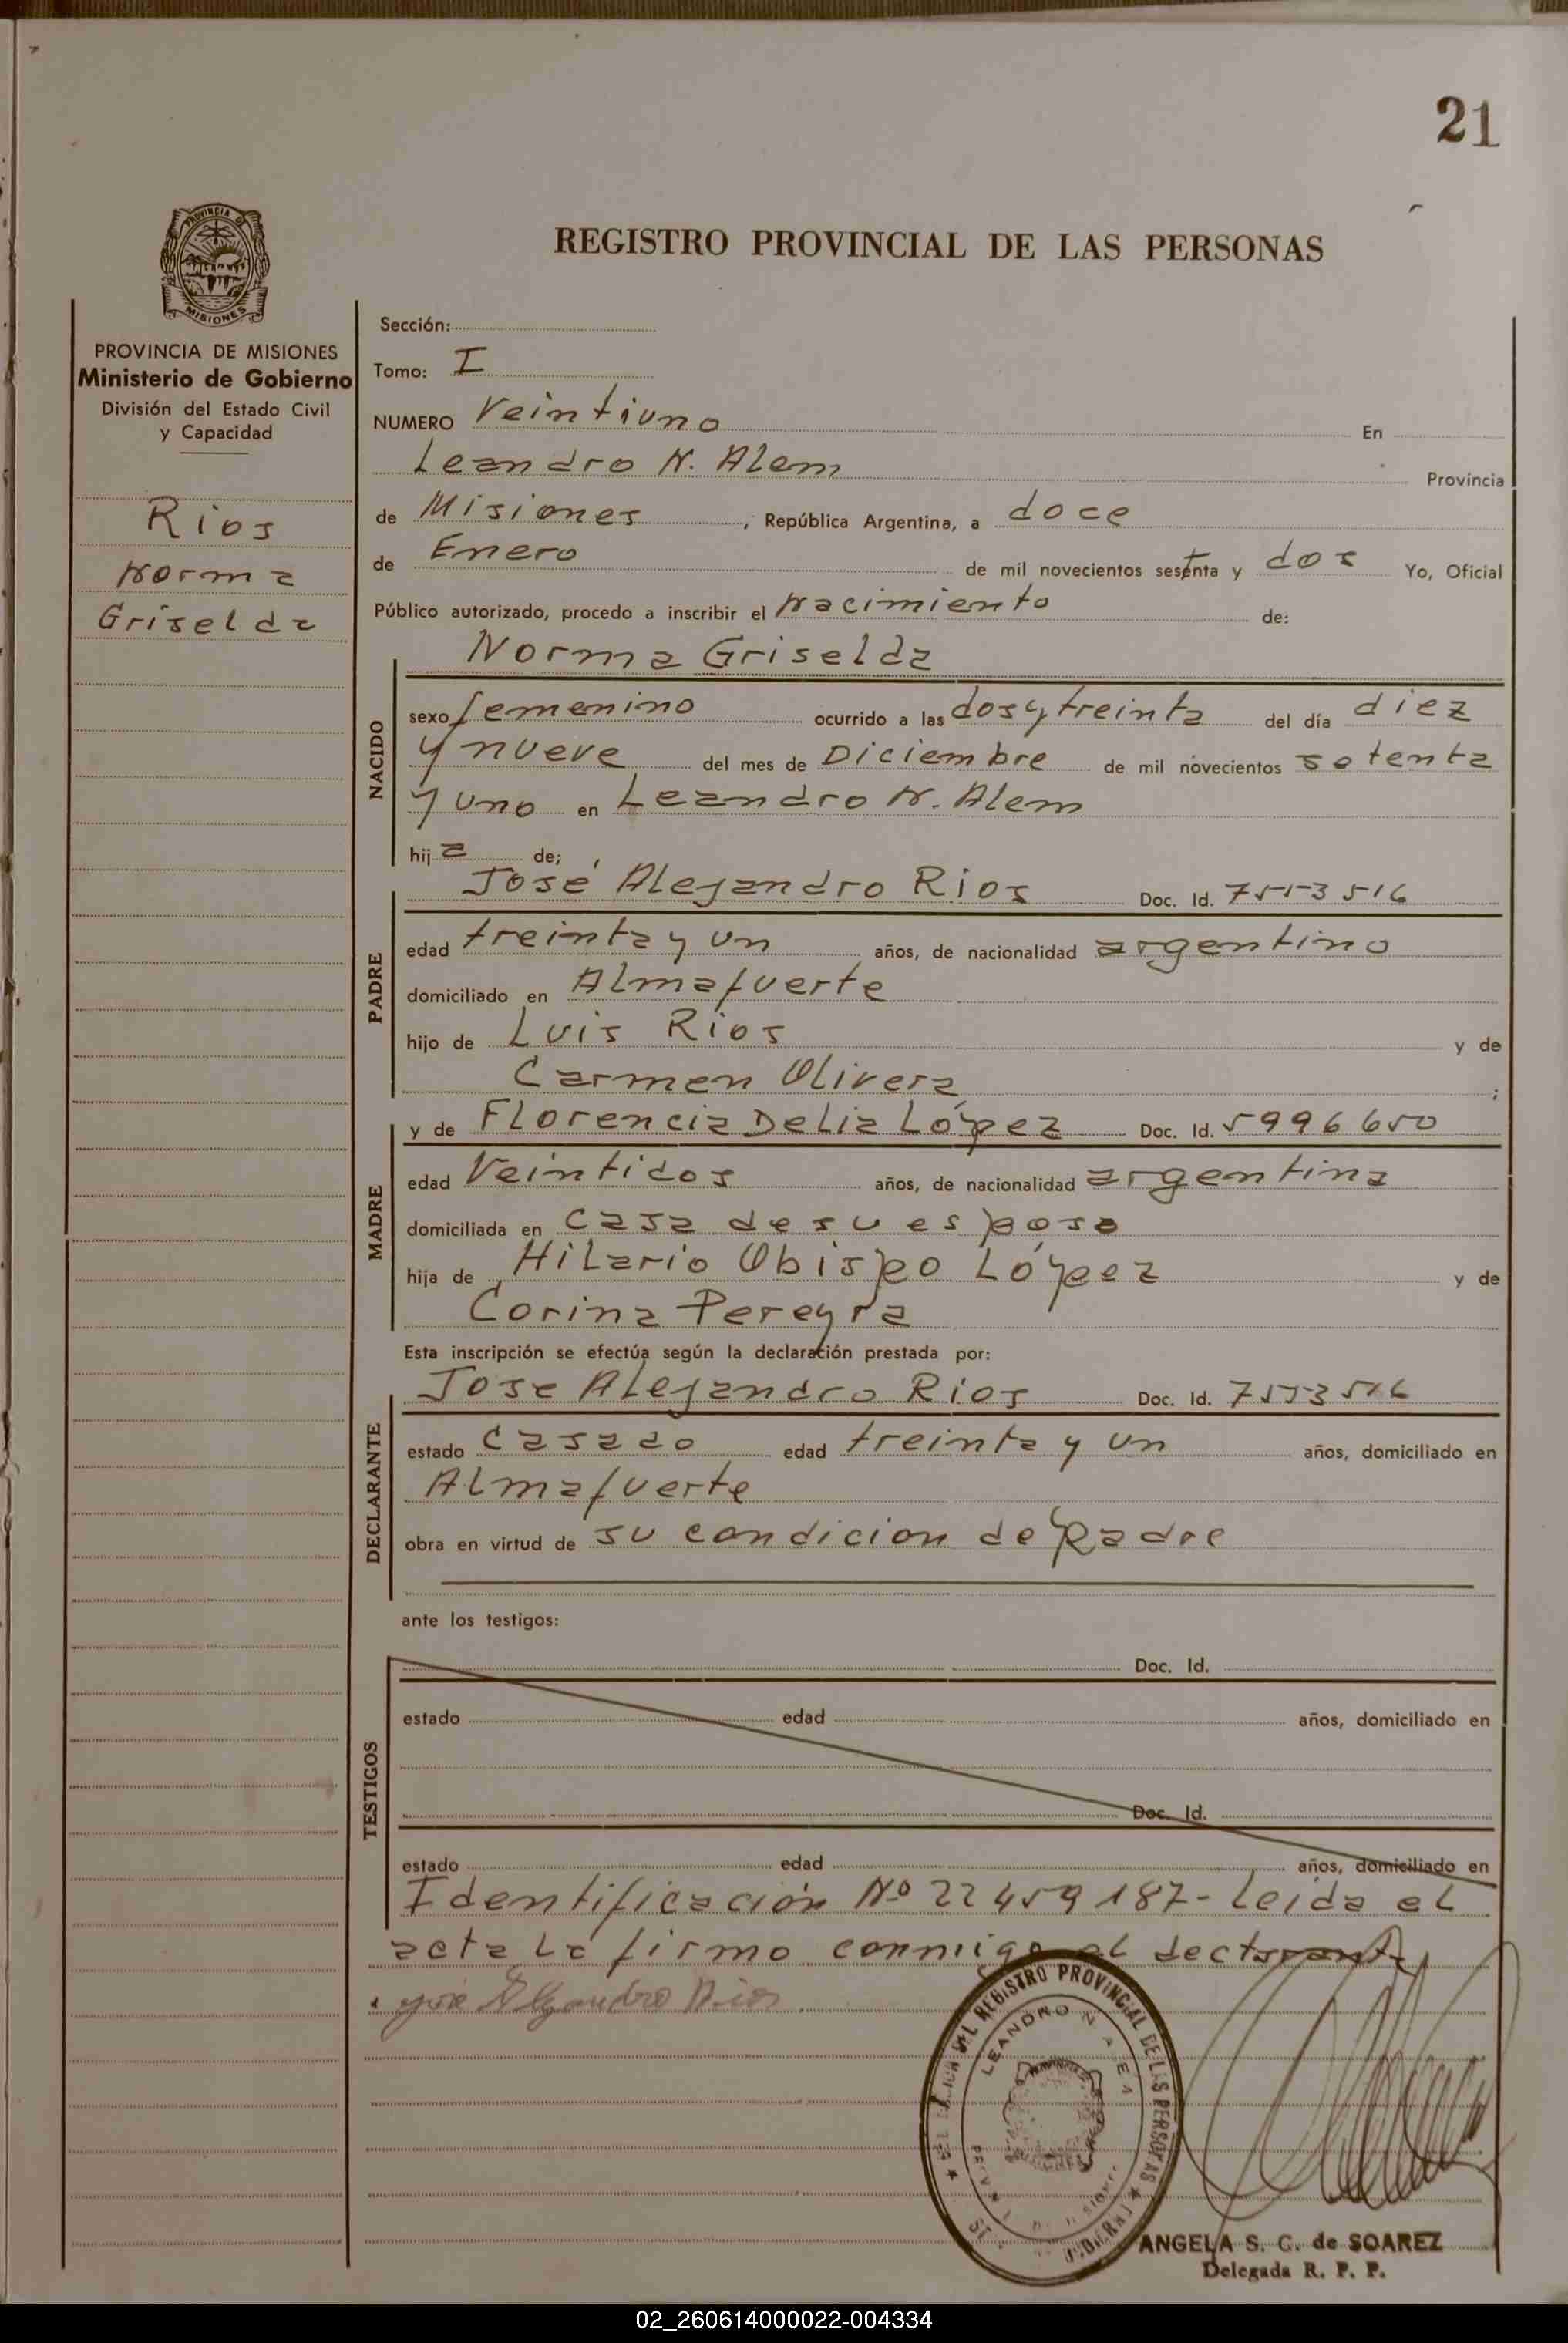 21
PROVINCIA DE
MISIONES
REGISTRO PROVINCIAL DE LAS PERSONAS
PROVINCIA DE MISIONES
Ministerio de Gobierno
División del Estado Civil
y Capacidad
Rios
Norma
Griselda
Sección:
Tomo: I
NUMERO Veintiuno En
Leandro N. Alem Provincia
de Misiones, República Argentina, a doce
de Enero de mil novecientos setenta y dos Yo, Oficial
Público autorizado, procedo a inscribir el nacimiento de:
Norma Griselda
NACIDO
sexo femenino ocurrido a las dos y treinta del día diez
y nueve del mes de Diciembre de mil novecientos setenta
y uno en Leandro N. Alem
hija de;
José Alejandro Rios Doc. Id. 7553516
PADRE
edad treinta y un años, de nacionalidad argentino
domiciliado en Almafuerte
hijo de Luis Rios y de
Carmen Olivera ;
y de Florencia Delia López Doc. Id. 5996650
MADRE
edad Veintidos años, de nacionalidad argentina
domiciliada en casa de su esposo
hija de Hilario Obispo López y de
Corina Pereyra
Esta inscripción se efectúa según la declaración prestada por:
Jose Alejandro Rios Doc. Id. 7553516
DECLARANTE
estado casado edad treinta y un años, domiciliado en
Almafuerte
obra en virtud de su condicion de padre
ante los testigos:
Doc. Id.
TESTIGOS
estado edad años, domiciliado en
Doc. Id.
estado edad años, domiciliado en
Identificación No 22459187- leida el
acta la firmo conmigo el declarante
José Alejandro Rios
REGISTRO PROVINCIAL DE LAS PERSONAS
LEANDRO N
ANGELA S. C. de SOAREZ
Delegada R. P. P.
02_260614000022-004334